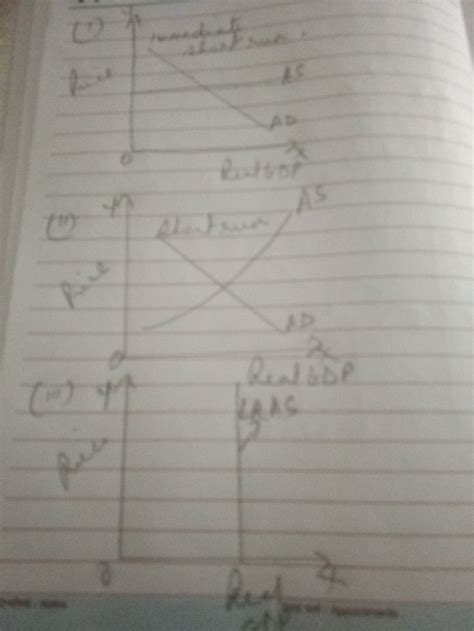 (i) Y
immediate
short run.
Price
AS
AD
O X
Real GDP
(ii) Y
AS
Short run
Price
AD
O X
Real GDP
(iii) Y
LRAS
Price
O X
Real
GDP